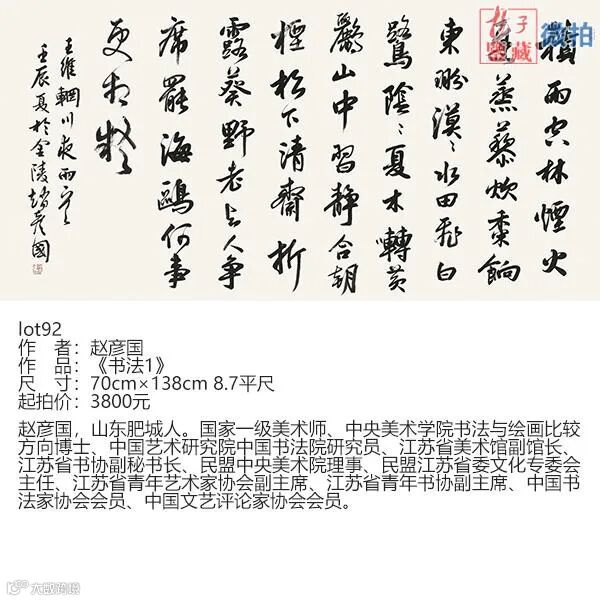 積雨空林煙火
遲蒸藜炊黍餉
東菑漠〻水田飛白
鷺陰〻夏木轉黃
鸝山中習靜 朝
槿松下清齋折
露葵野老與人爭
席罷海鷗何事
更相疑
王維輞川 雨
壬辰夏於金陵趙彥國
子
鑒藏
微拍
lot92
作 者：赵彦国
作 品：《书法1》
尺 寸：70cm×138cm 8.7平尺
起拍价：3800元
赵彦国，山东肥城人。国家一级美术师、中央美术学院书法与绘画比较
方向博士、中国艺术研究院中国书法院研究员、江苏省美术馆副馆长、
江苏省书协副秘书长、民盟中央美术院理事、民盟江苏省委文化专委会
主任、江苏省青年艺术家协会副主席、江苏省青年书协副主席、中国书
法家协会会员、中国文艺评论家协会会员。
大数跨境